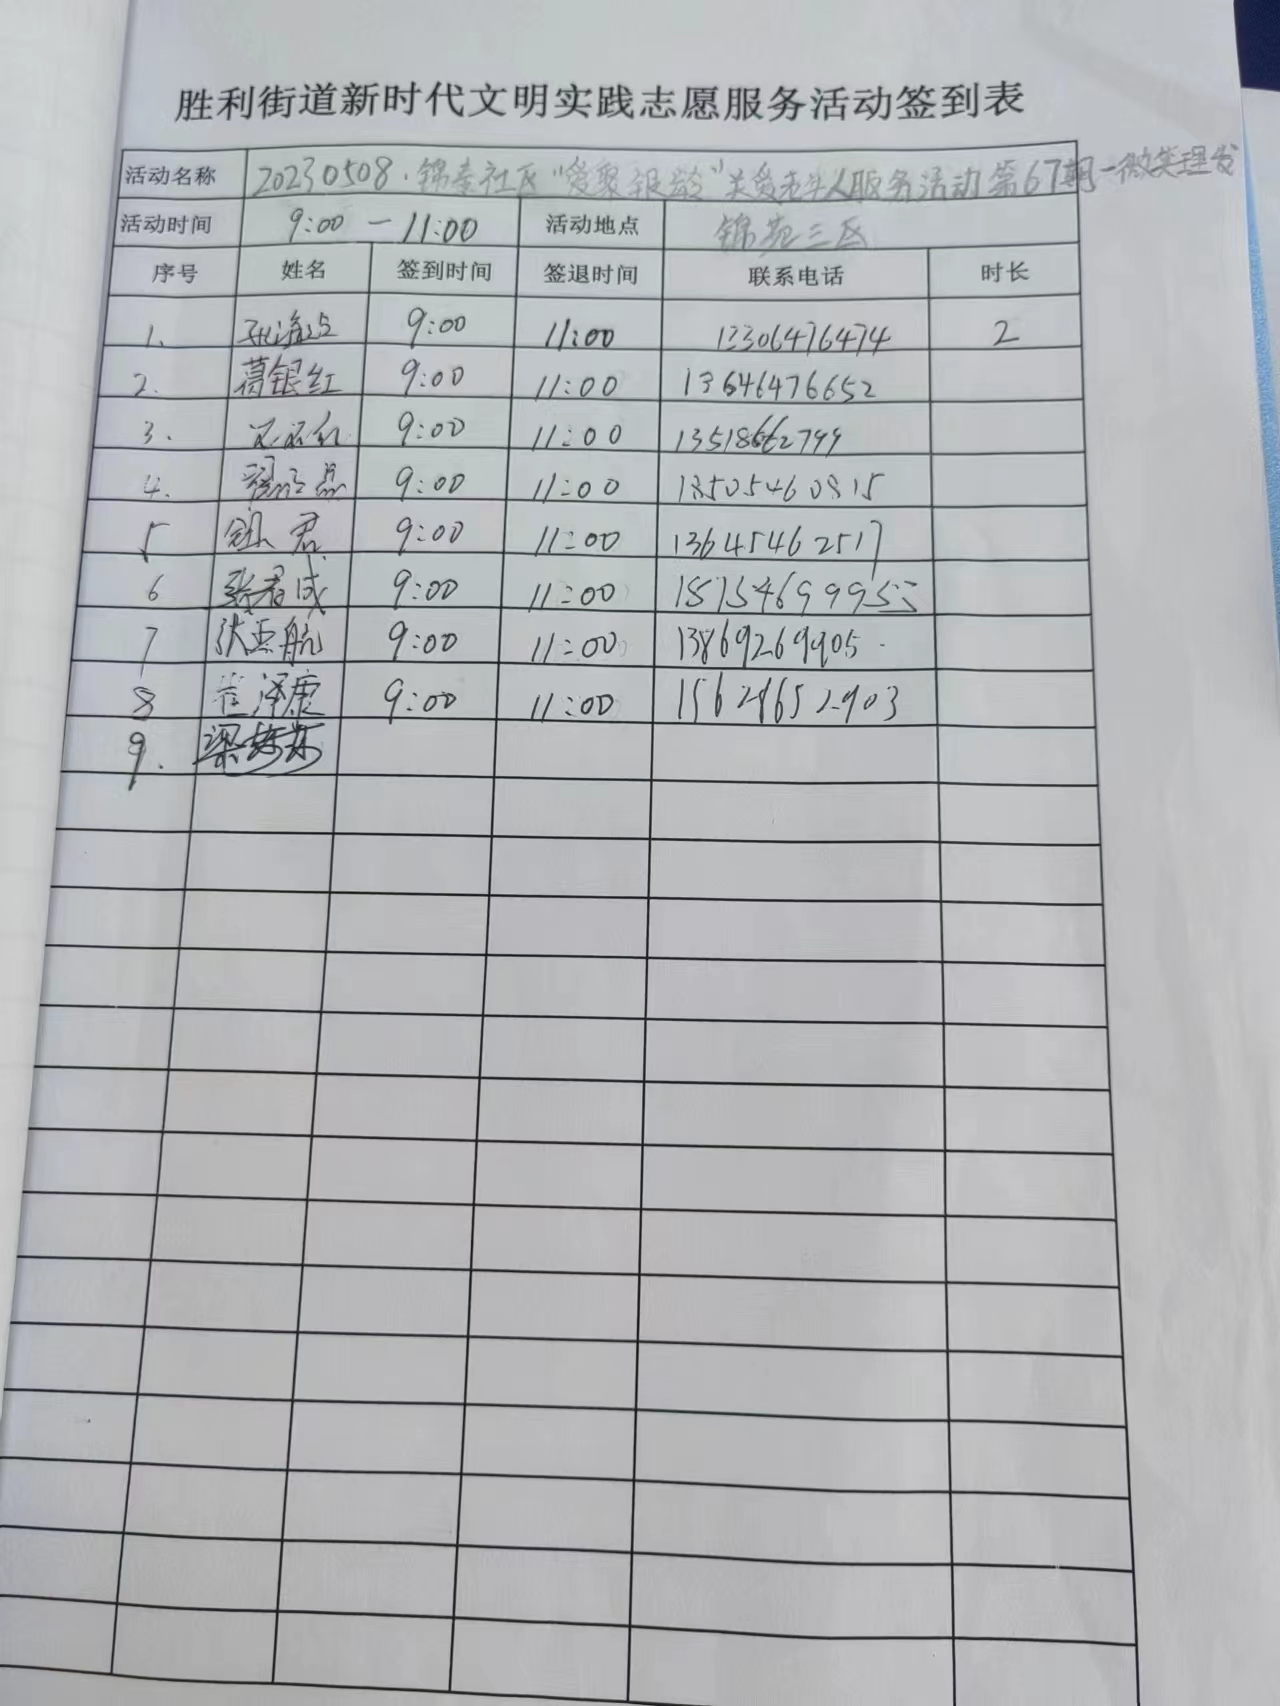 胜利街道新时代文明实践志愿服务活动签到表
活动名称 20230508.锦华社区"爱聚银龄"关爱老年人服务活动第67期-微笑理发
活动时间 9:00-11:00 活动地点 锦苑三区
序号 姓名 签到时间 签退时间 联系电话 时长
1. 9:00 11:00 13306476474 2
2. 葛银红 9:00 11:00 13646476652
3. 9:00 11:00
4. 9:00 11:00
5 君 9:00 11:00 13645462517
6 张君成 9:00 11:00
7 张亚航 9:00 11:00 13869269905
8 崔泽康 9:00 11:00 15628652903
9. 梁